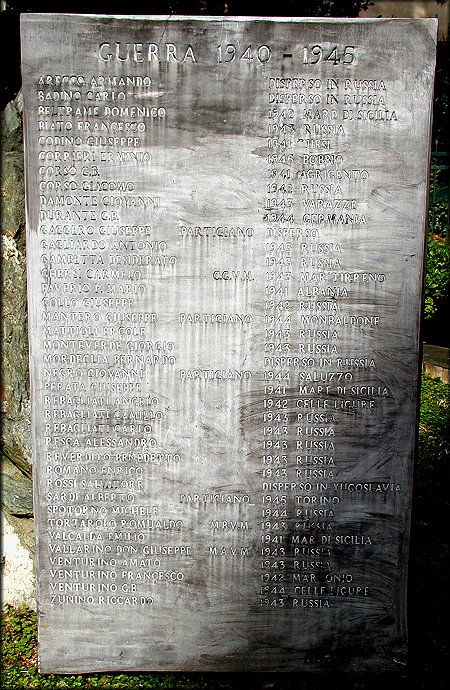 GUERRA 1940 - 1945
ARECCO ARMANDO DISPERSO IN RUSSIA
BADINO CARLO DISPERSO IN RUSSIA
BELTRAME DOMENICO 1942 MARE DI SICILIA
BIATO FRANCESCO 1943 RUSSIA
CODINO GIUSEPPE 1941
CORRIERI ERMINIO 1945 BOBBIO
CORSO G.B. 1941 AGRIGENTO
CORSO GIACOMO 1942 RUSSIA
DAMONTE GIOVANNI 1943 VARAZZE
DURANTE G.B. 1944 GERMANIA
GAGGERO GIUSEPPE PARTIGIANO DISPERSO
GAGLIARDO ANTONIO 1943 RUSSIA
GAMBETTA DESIDERATO RUSSIA
GHERSI CARMELO 1943 MAR TIRRENO
MARIO 1941 ALBANIA
GOLLO GIUSEPPE 1942 RUSSIA
MANTERO GIUSEPPE PARTIGIANO 1944 MONBALDONE
MATTIOLI ERCOLE 1943 RUSSIA
MONTEVERDE GIORGIO 1943 RUSSIA
MORDEGLIA BERNARDO DISPERSO IN RUSSIA
NEGRO GIOVANNI PARTIGIANO 1944 SALUZZO
PERATA GIUSEPPE 1941 MARE DI SICILIA
REBAGLIATI ANGELO 1942 CELLE LIGURE
REBAGLIATI CAMILLO 1943 RUSSIA
REBAGLIATI CARLO 1943 RUSSIA
RESCA ALESSANDRO 1943 RUSSIA
REVERDITO BENEDETTO 1943 RUSSIA
ROMANO ENRICO 1943 RUSSIA
ROSSI SALVATORE DISPERSO IN YUGOSLAVIA
SARDI ALBERTO PARTIGIANO 1945 TORINO
SPOTORNO MICHELE 1944 RUSSIA
TORTAROLO ROMUALDO M.B.V.M. 1943 RUSSIA
VALCALDA EMILIO 1941 MAR DI SICILIA
VALLARINO DON GIUSEPPE M.A.V.M. 1943 RUSSIA
VENTURINO AMATO 1943 RUSSIA
VENTURINO FRANCESCO 1942 MAR JONIO
VENTURINO G.B. 1944 CELLE LIGURE
ZUNINO RICCARDO 1943 RUSSIA